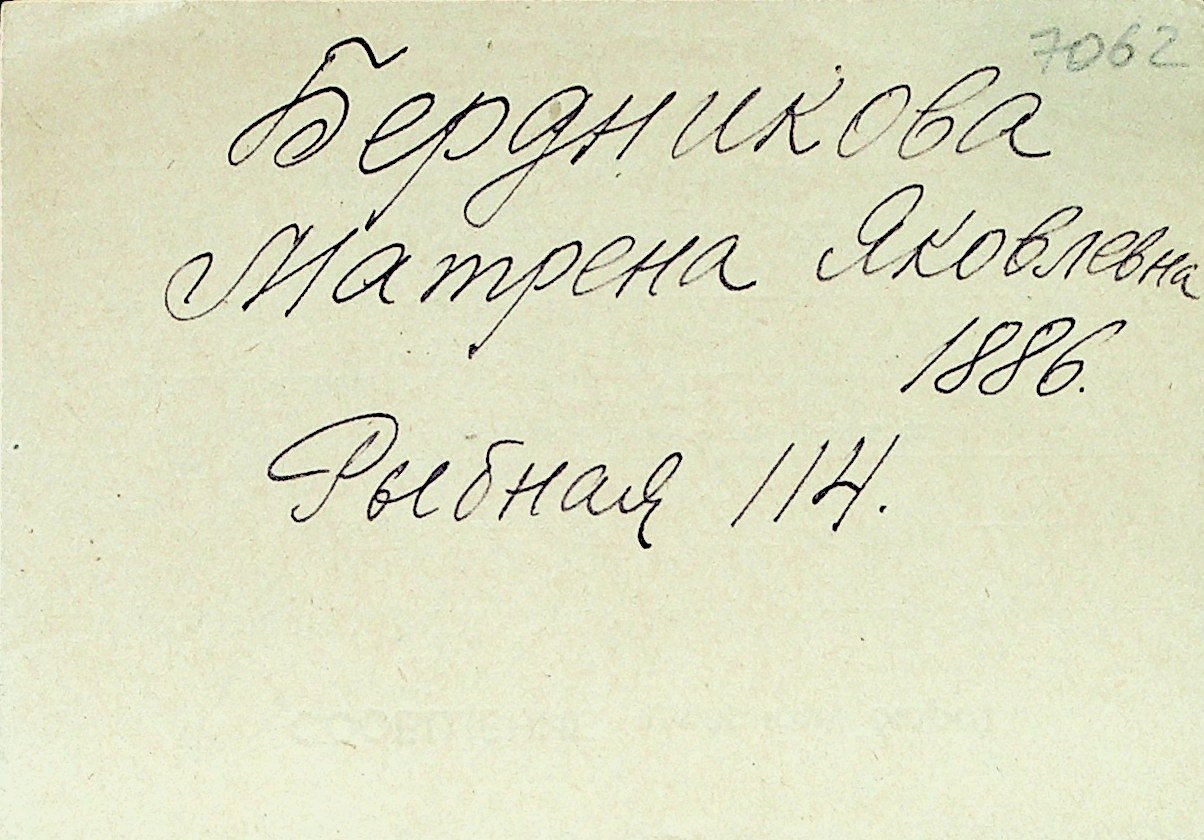 7062
Бердникова
Матрена Яковлевна
1886.
Рыбная 114.